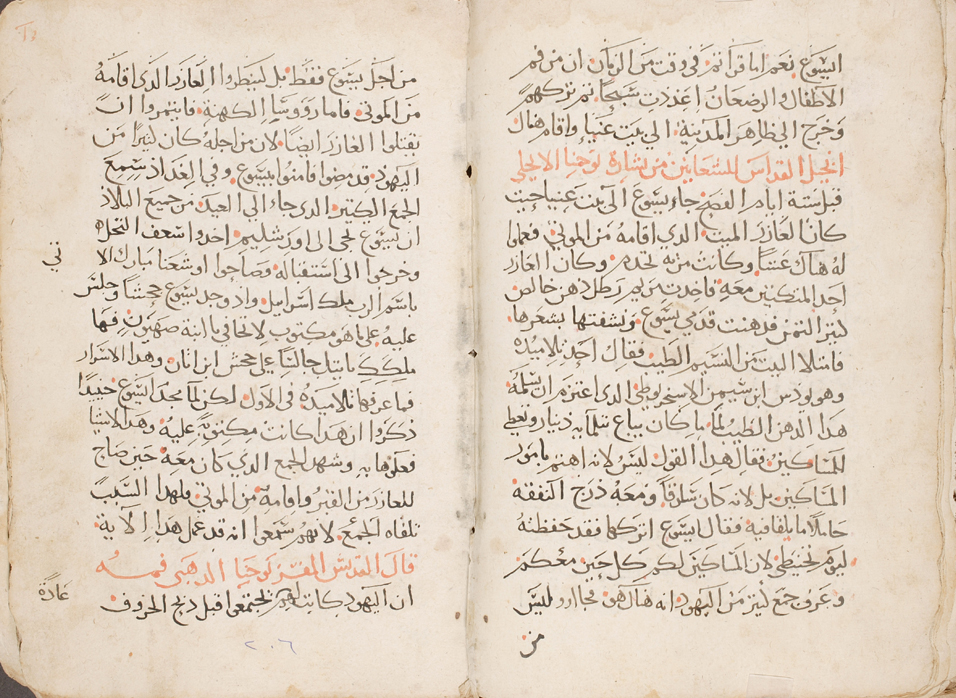 ايسوع نعم اما قراتم في وقت من الزمان ان من فم
الاطفال والرضعان اعددت سبحا ثم تركهم
وخرج الي ظاهر المدينة الي بيت عنيا واقام هناك
انجيل القداس للشعانين من بشارة يوحنا الانجيلي
قبل ستة ايام الفصح جاء يسوع الي بيت عنيا حيث
كان لعازر الميت الدي اقامه من الموتي فعملوا
له هناك عشا وكانت مرتا تخدم وكان العازر
احد المتكيين معه فاخدت مريم رطل دهن خالص
كتير التمن فدهنت قدمي يسوع ونشفتها بشعرها
فامتلا البيت من النسيم الطيب فقال احد تلاميده
وهو يودس ابن سيمن الاسخريوطي الدي اعتزم ان يسلمه
هدا الدهن الطيب لما ما كان يباع بتلتمايه دينار ويعطي
للمساكين فقال هدا القول ليس لانه اهتم بامور
المساكين بل لانه كان سارقا ومعه درج النفقه
حاملا ما يلقا فيه فقال ايسوع اتركها فقد حفظته
ليوم تحنيطي لان المساكين لكم كل حين معكم
وعرف جمع كتير من اليهود انه هناك هو فجاوو ليس
من
من اجل يسوع فقط بل لينظروا العازر الدي اقامه
من الموتي فامار رووسا الكهنة فايتمروا ان
يقتلوا العازر ايضا لان من اجله كان كتيرا من
اليهود قد مضوا فامنوا بيسوع وفي الغد اد سمع
الجمع الكتير الدي جاء الي العيد من جميع البلاد
ان يسوع يجي الي اورشليم اخدوا سعف النخله
وخرجوا الي استقباله وصاحوا اوشعنا مبارك الا
تي
باسم الرب ملك اسرايل واد وجد يسوع جحشا وجلس
عليه علي ما هو مكتوب لا تخافي يا ابنة صهيون فها
ملكك ياتيك جالسا علي جحش ابن اتان وهدا الاسرار
فما عرفها تلاميده في الاول لكن لما مجد ايسوع حينيدا
دكروا ان هدا كانت مكتوبة عليه وهدا الاشيا
فعلوها به وشهد الجمع الدي كان معه حين صاح
للعازر من القبر واقامه من الموتي فلهدا السبب
تلقاه الجمع لانهم سمعوا انه قد عمل هدا الاية
قال القديس المفسر يوحنا الدهبي فمه
ان اليهود كانت لهم عادة
يجتمعوا قبل دبح الخروف
٢٠٦